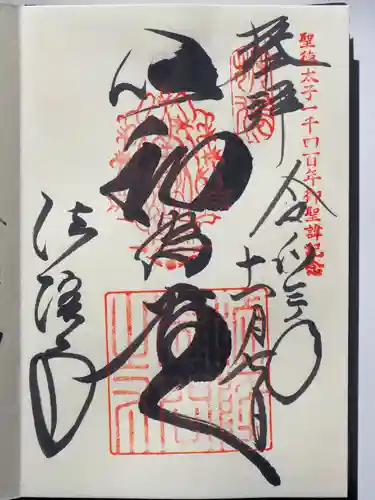 聖徳太子一千四百年御聖諱記念
奉拝
令和三年
十一月
以和為貴
法隆寺